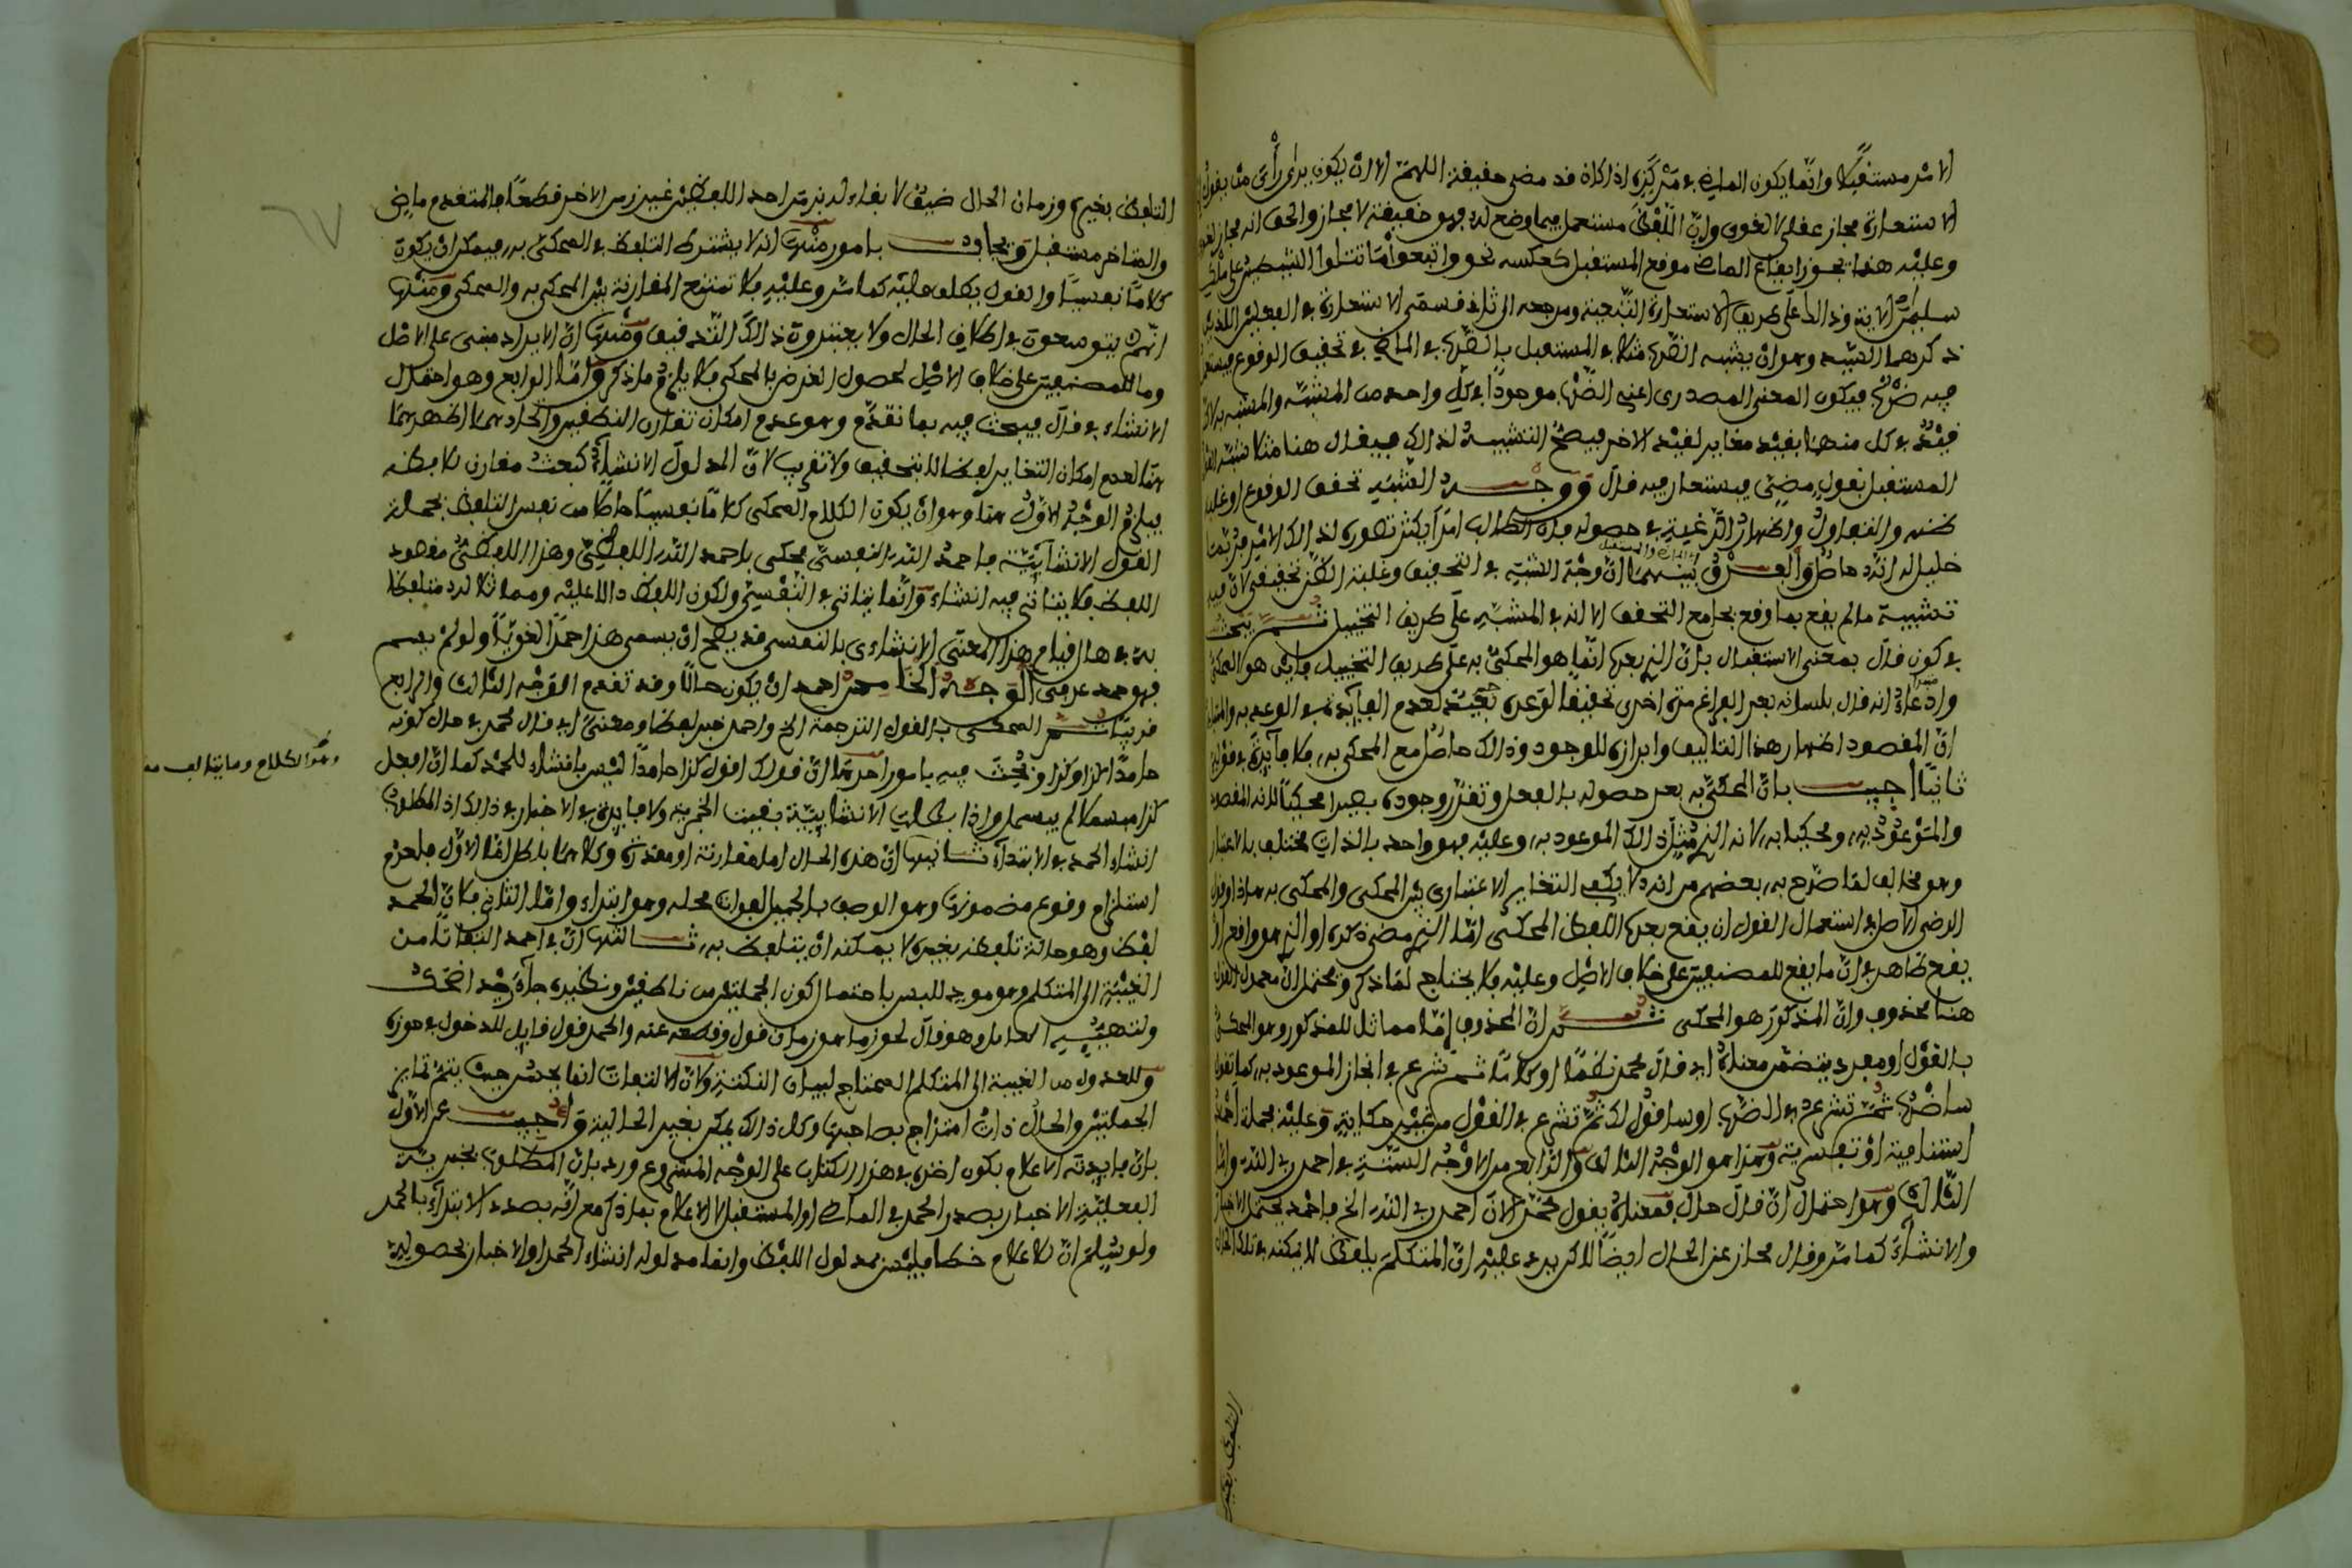 الامر مستقبلا وانما يكون الماضي اذا كان قد مضى حقيقة اللهم الا ان يكون يرى رأي من يقول
الاستعارة مجاز عقلي لا لغوي وان اللفظ مستعمل فيما وضع له فهو حقيقة لا مجاز والحق انه مجاز لغوي
وعليه هنا يجوز ايقاع الماضي موقع المستقبل كعكسه نحو واتبعوا ما تتلوا الشيطين على ملك
سليمن الاية وذالك على طريق الاستعارة التبعية ومرجعه الى ثاني قسمي الاستعارة في الفعل اللذين
ذكرهما السيد وهو ان يشبه الضرب مثلا في المستقبل بالضرب في الماضي في تحقيق الوقوع فيستعمل
فيه ضرب فيكون المعنى المصدري اعني الضرب موجودا في كل واحد من المشبه والمشبه به لانه
قيد في كل منهما بقيد مغاير لقيد الاخر فيصح التشبيه لذالك فيقال هنا مثلا شبه القول
المستقبل بقول مضى فيستعار فيه قال ووجه الشبه تحقق الوقوع او غلبة
ظنه والتفاؤل واظهار الرغبة في حصوله فان الطالب امرا يكثر تصوره لذالك الامر فربما
خيل له انه حاصل والفرق بينهما ان وجه الشبه في التحقيق وغلبة الظن تحقيقي لان فيه
تشبيه ما لم يقع بما وقع بجامع التحقق الا انه في المشبه على طريق التخييل ثم يبحث
في كون قال بمعنى الاستقبال بان الذي بعدها انما هو المحكي به على طريق التخييل فاين هو المحكي
وادعاء انه قال بلسانه بعد الفراغ مرة اخرى تحقيقا لوعده بعيد لعدم الفائدة في الوعد به
ان المقصود اظهار هذا التاليف وابرازه للوجود وذالك حاصل مع المحكي به فلا فائدة في قوله
ثانيا اجيب بان المحكي به بعد حصوله بالفعل وتقرر وجوده يصير محكيا لانه المقصود
والموعود به ومحكيا به لانه الذي مثل ذالك الموعود به وعليه فهو واحد بالذات مختلف بالاعتبار
وهو مخالف لما صرح به بعضهم من انه لا يكفي التغاير الاعتباري بين المحكي والمحكي به
الرضي الاصل في استعمال القول ان يقع بعدها اللفظ المحكي اما الذي مضى ذكره او الذي هو واقع
يقع ظاهر في ان ما يقع للمصنفين على خلاف الاصل وعليه فلا يحتاج لما ذكر ويحتمل ان معمول القول
هنا محذوف وان المذكور هو المحكي ثم ان المحذوف اما مماثل للمذكور وهو المحكي
بالقول او مفرد يتضمن معناه اي قال محمد نظما او كلاما ثم شرع في انجاز الموعود به كما تقول
ساضرب ثم تشرع في الضرب او ساقول لك ثم تشرع في القول من غير حكاية وعليه فجملة احمد
استئنافية او تفسيرية وهذا هو الوجه الثالث والرابع من الاوجه الستة في احمد ربي الله واما
الثالث وهو احتمال ان قال حال فمعناه يقول محمد الان احمد ربي الله الخ فاحمد يحتمل الاخبار
والانشاء كما مر وقال مجاز عن الحال ايضا لاكن يرد عليه ان المتكلم بلفظ لا يمكنه في تلك الحال
التلفظ بغير
التلفظ بغيره وزمان الحال ضيق لا بقاء له بزمن احد اللفظين غير زمن الاخر قطعا فالمتقدم ماض
والمتاخر مستقبل ويجاوب بامور منها انه لا يشترط التلفظ في المحكي به فيمكن ان يكون
كلاما نفسيا والقول يطلق عليه كما مر وعليه فلا تمتنع المقارنة بين المحكي به والمحكي ومنها
انهم يتوسعون في اطلاق الحال ولا يعتبرون ذالك التدقيق ومنها ان الايراد مبني على الاصل
وما للمصنفين على خلاف الاصل لحصول الغرض بالمحكي فلا يلزم ما ذكر واما الرابع وهو احتمال
الانشاء في قال فيبحث فيه بما تقدم وهو عدم امكان تقارن النطقين والجاد هنا اظهر
هنا لعدم امكان التغاير لفظا لا بتحقيق ولا تقريب لان المدلول الانشائي كبعت مقارن للافظه
فيلزم الوجه الاول هنا وهو ان يكون الكلام المحكي كلاما نفسيا حاكا من نفس التلفظ بجملة
القول الانشائية فاحمد الله النفسي محكي باحمد الله اللفظي وهذا اللفظي مقصود
اللفظ فلا يتاتى فيه انشاء وانما يتاتى في النفسي ولكون اللفظ دالا عليه ومماثلا له متلفظا
به في حال قيام هذا المعنى الانشاءي بالنفس قد يصح ان يسمى هذا حمدا لغويا ولو لم يسم
فهو حمد عرفي الوجه الخامس احمد ان يكون حالا وقد تقدم الوجه الثالث والرابع
قريبا ثم المحكي بالقول الترجمة الخ واحمد خبر لفظا ومعنى اي قال محمد في حال كونه
حامدا الله وكذا ويبحث فيه بامور احدها ان قولك اقول كذا حامدا ليس بانشاء للحمد كما ان افعل
كذا مبسملا لم يبسمل واذا بطلت الانشائية بقيت الخبرية ولا فائدة في الاخبار في ذالك اذ المطلوب
انشاء الحمد في الابتداء ثانيها ان هذه الحال اما مقارنة او مقدرة وكلاهما باطل اما الاول فلعدم
استلزام وقوع مضمونها وهو الوصف بالجميل لفوات محله وهو ابتداء واما الثاني فلان الحمد
لفظ وهو حالة تلفظه بغيره لا يمكنه ان يتلفظ به ثالثها ان في احمد التفاتا من
الغيبة الى المتكلم وهو مويد للبس باحتمال كون الجملتين من ناطقين ونظيره جاء زيد اضحك
ولتهييء العامل وهو قال لحوز ما هو زمان قول وقطعه عنه والحمد قول قابل للدخول في حوزه
وللعدول من الغيبة الى المتكلم المحتاج لبيان النكتة ولان الالتفات انما يحسن حيث يتم تمايز
الجملتين والحال ذات امتزاج بصاحبها وكل ذالك يمكن بغير الحالية واجيب عن الاول
بان فايدته الاعلام بكون اخذه في هذا الكتاب على الوجه المشروع ورد بان المطلوب بخبرية
الفعلية الاخبار بصدور الحمد في الماضي او المستقبل لا الاعلام بما ذكر مع انه بصدد الابتداء بالحمد
ولو سلم ان الاعلام خطا فليس مدلول اللفظ وانما مدلوله انشاء الحمد او الاخبار بحصوله
وهو الكلام وما يتالف منه